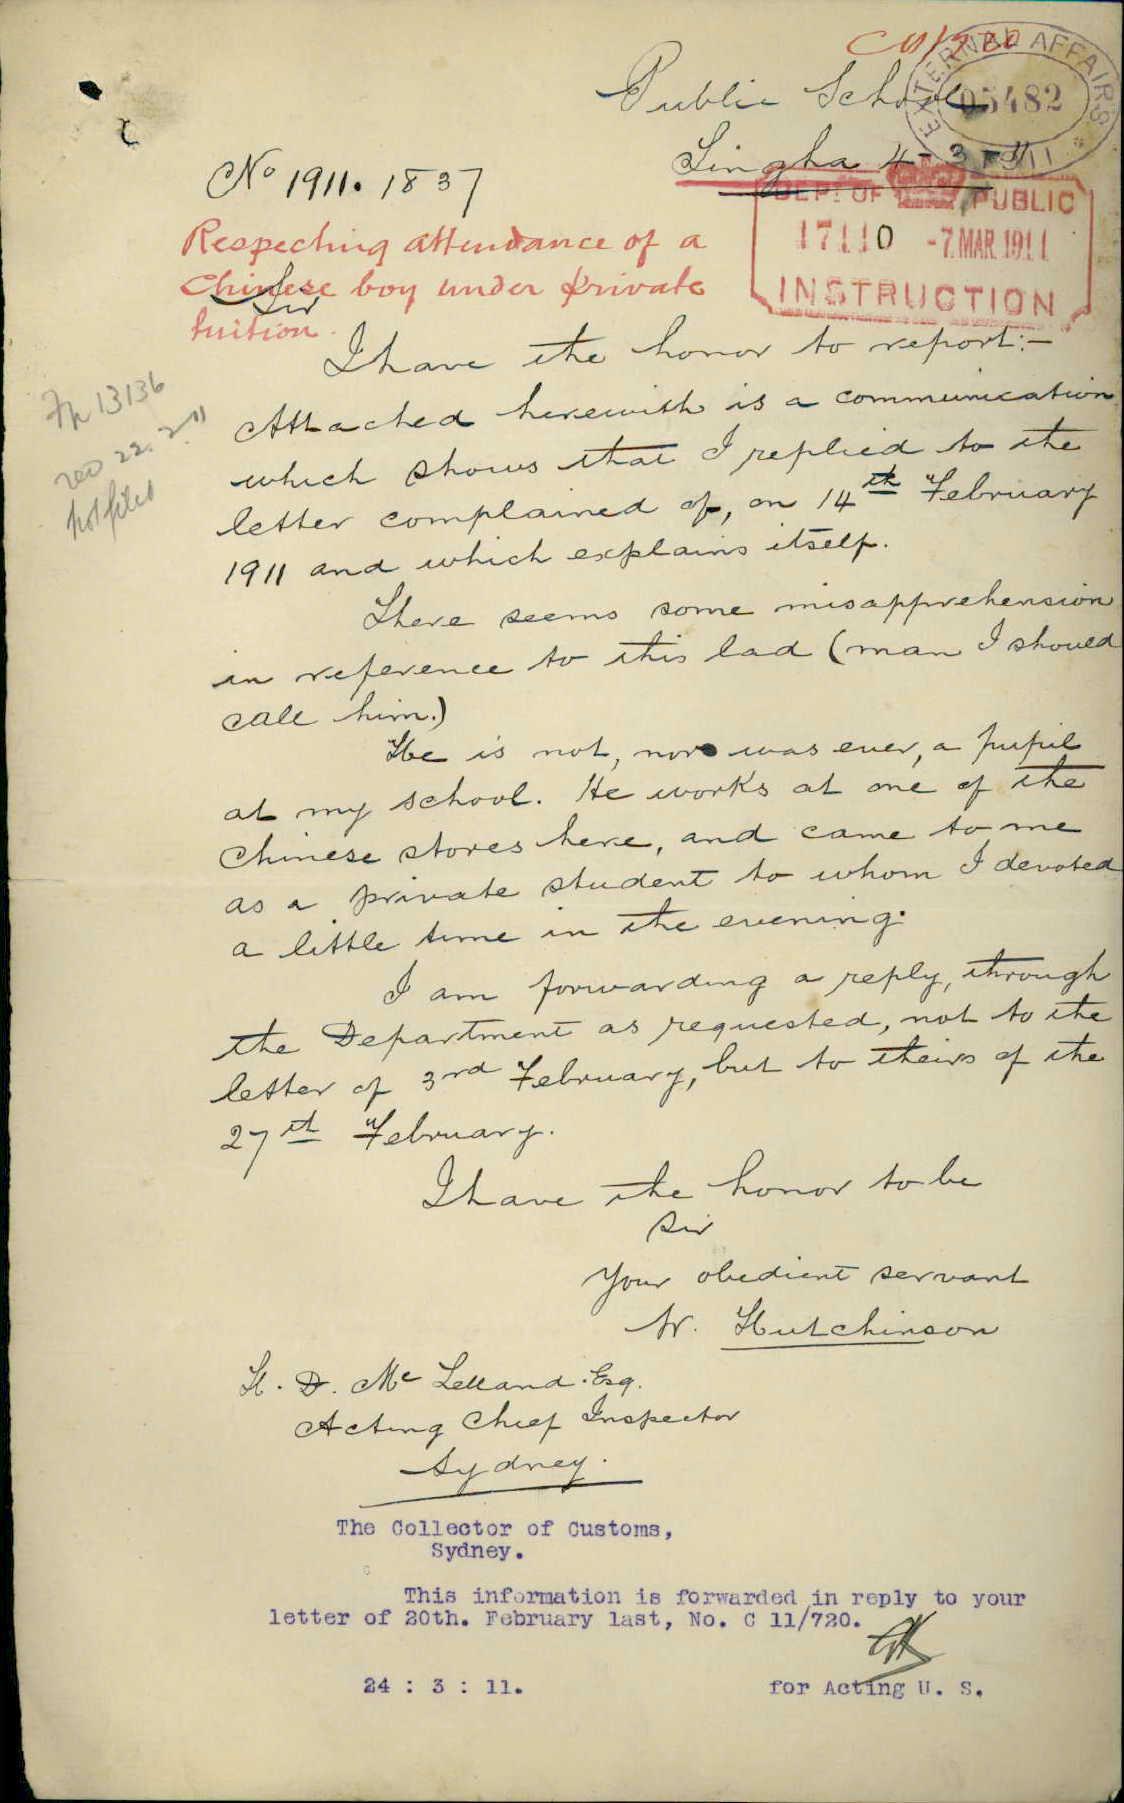 C11/720
EXTERNAL AFFAIRS
05482
Public School
Tingha 4-3-11
No 1911. 1837
DEPT OF PUBLIC
17110 -7.MAR.1911
INSTRUCTION
Respecting attendance of a
Chinese boy under private
tuition.
Sir
I have the honor to report:-
Attached herewith is a communication
which shows that I replied to the
letter complained of, on 14th February
1911 and which explains itself.
There seems some misapprehension
in reference to this lad (man I should
call him.)
He is not, nor was ever, a pupil
at my school. He works at one of the
Chinese stores here, and came to me
as a private student to whom I devoted
a little time in the evening.
I am forwarding a reply, through
the Department as requested, not to the
letter of 3rd February, but to theirs of the
27th February.
I have the honor to be
Sir
Your obedient servant
W. Hutchinson
H. D. Mc Lelland. Esq.
Acting Chief Inspector
Sydney.
13136
22.2.11
not filed
The Collector of Customs,
Sydney.
This information is forwarded in reply to your
letter of 20th. February last, No. C 11/720.
24 : 3 : 11.
for Acting U. S.